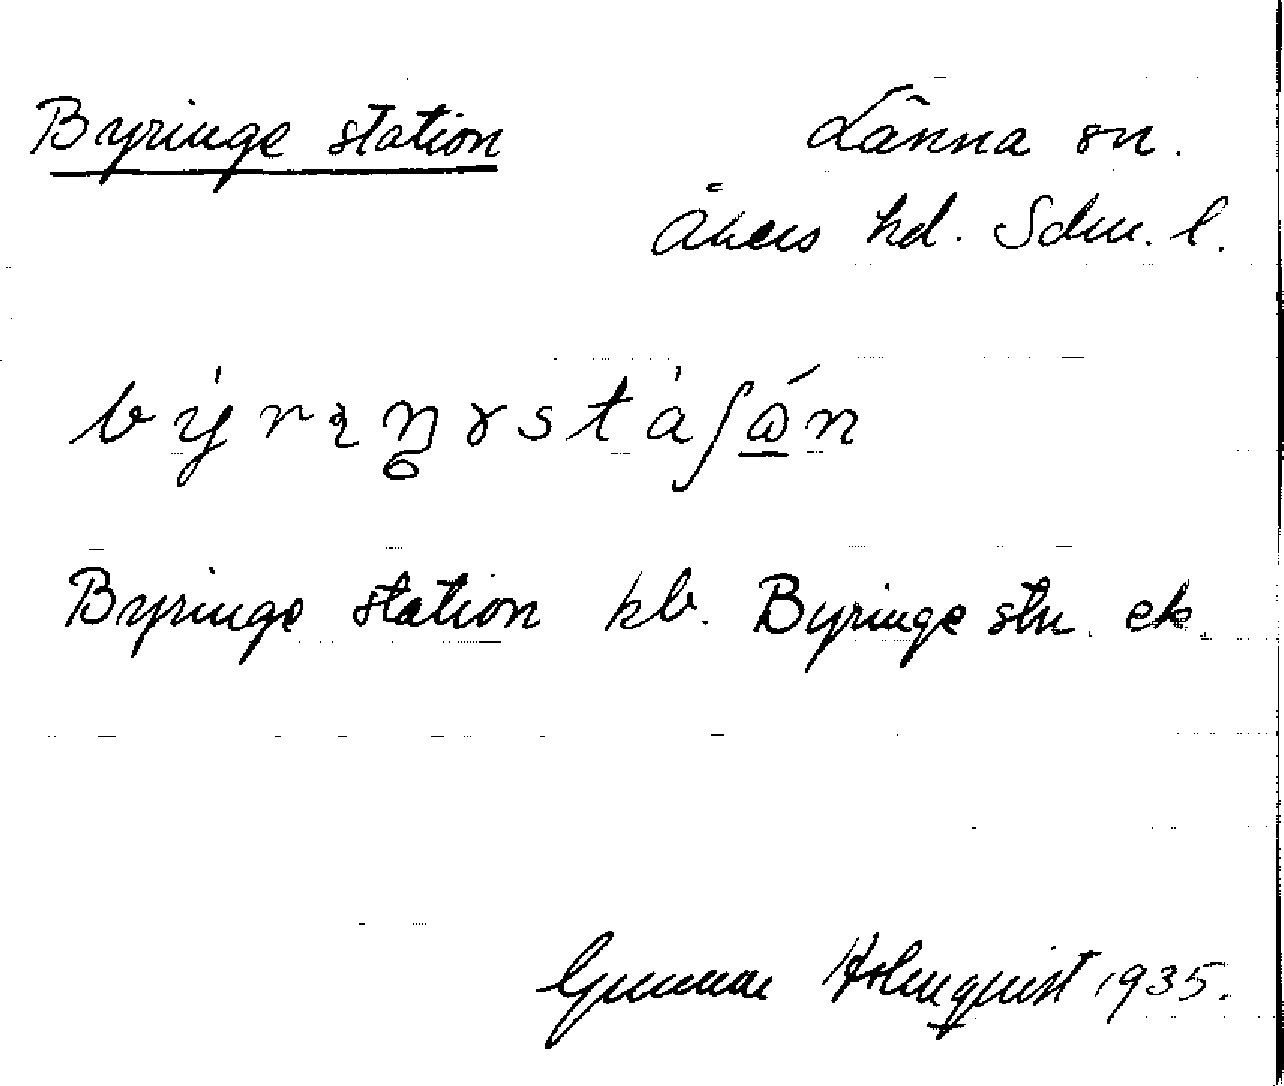 Byringe station
Länna sn.
Åkers hd. Sdm. l.
Byringe station kb. Byringe stn. ek.
Gunnar Holmquist 1935.